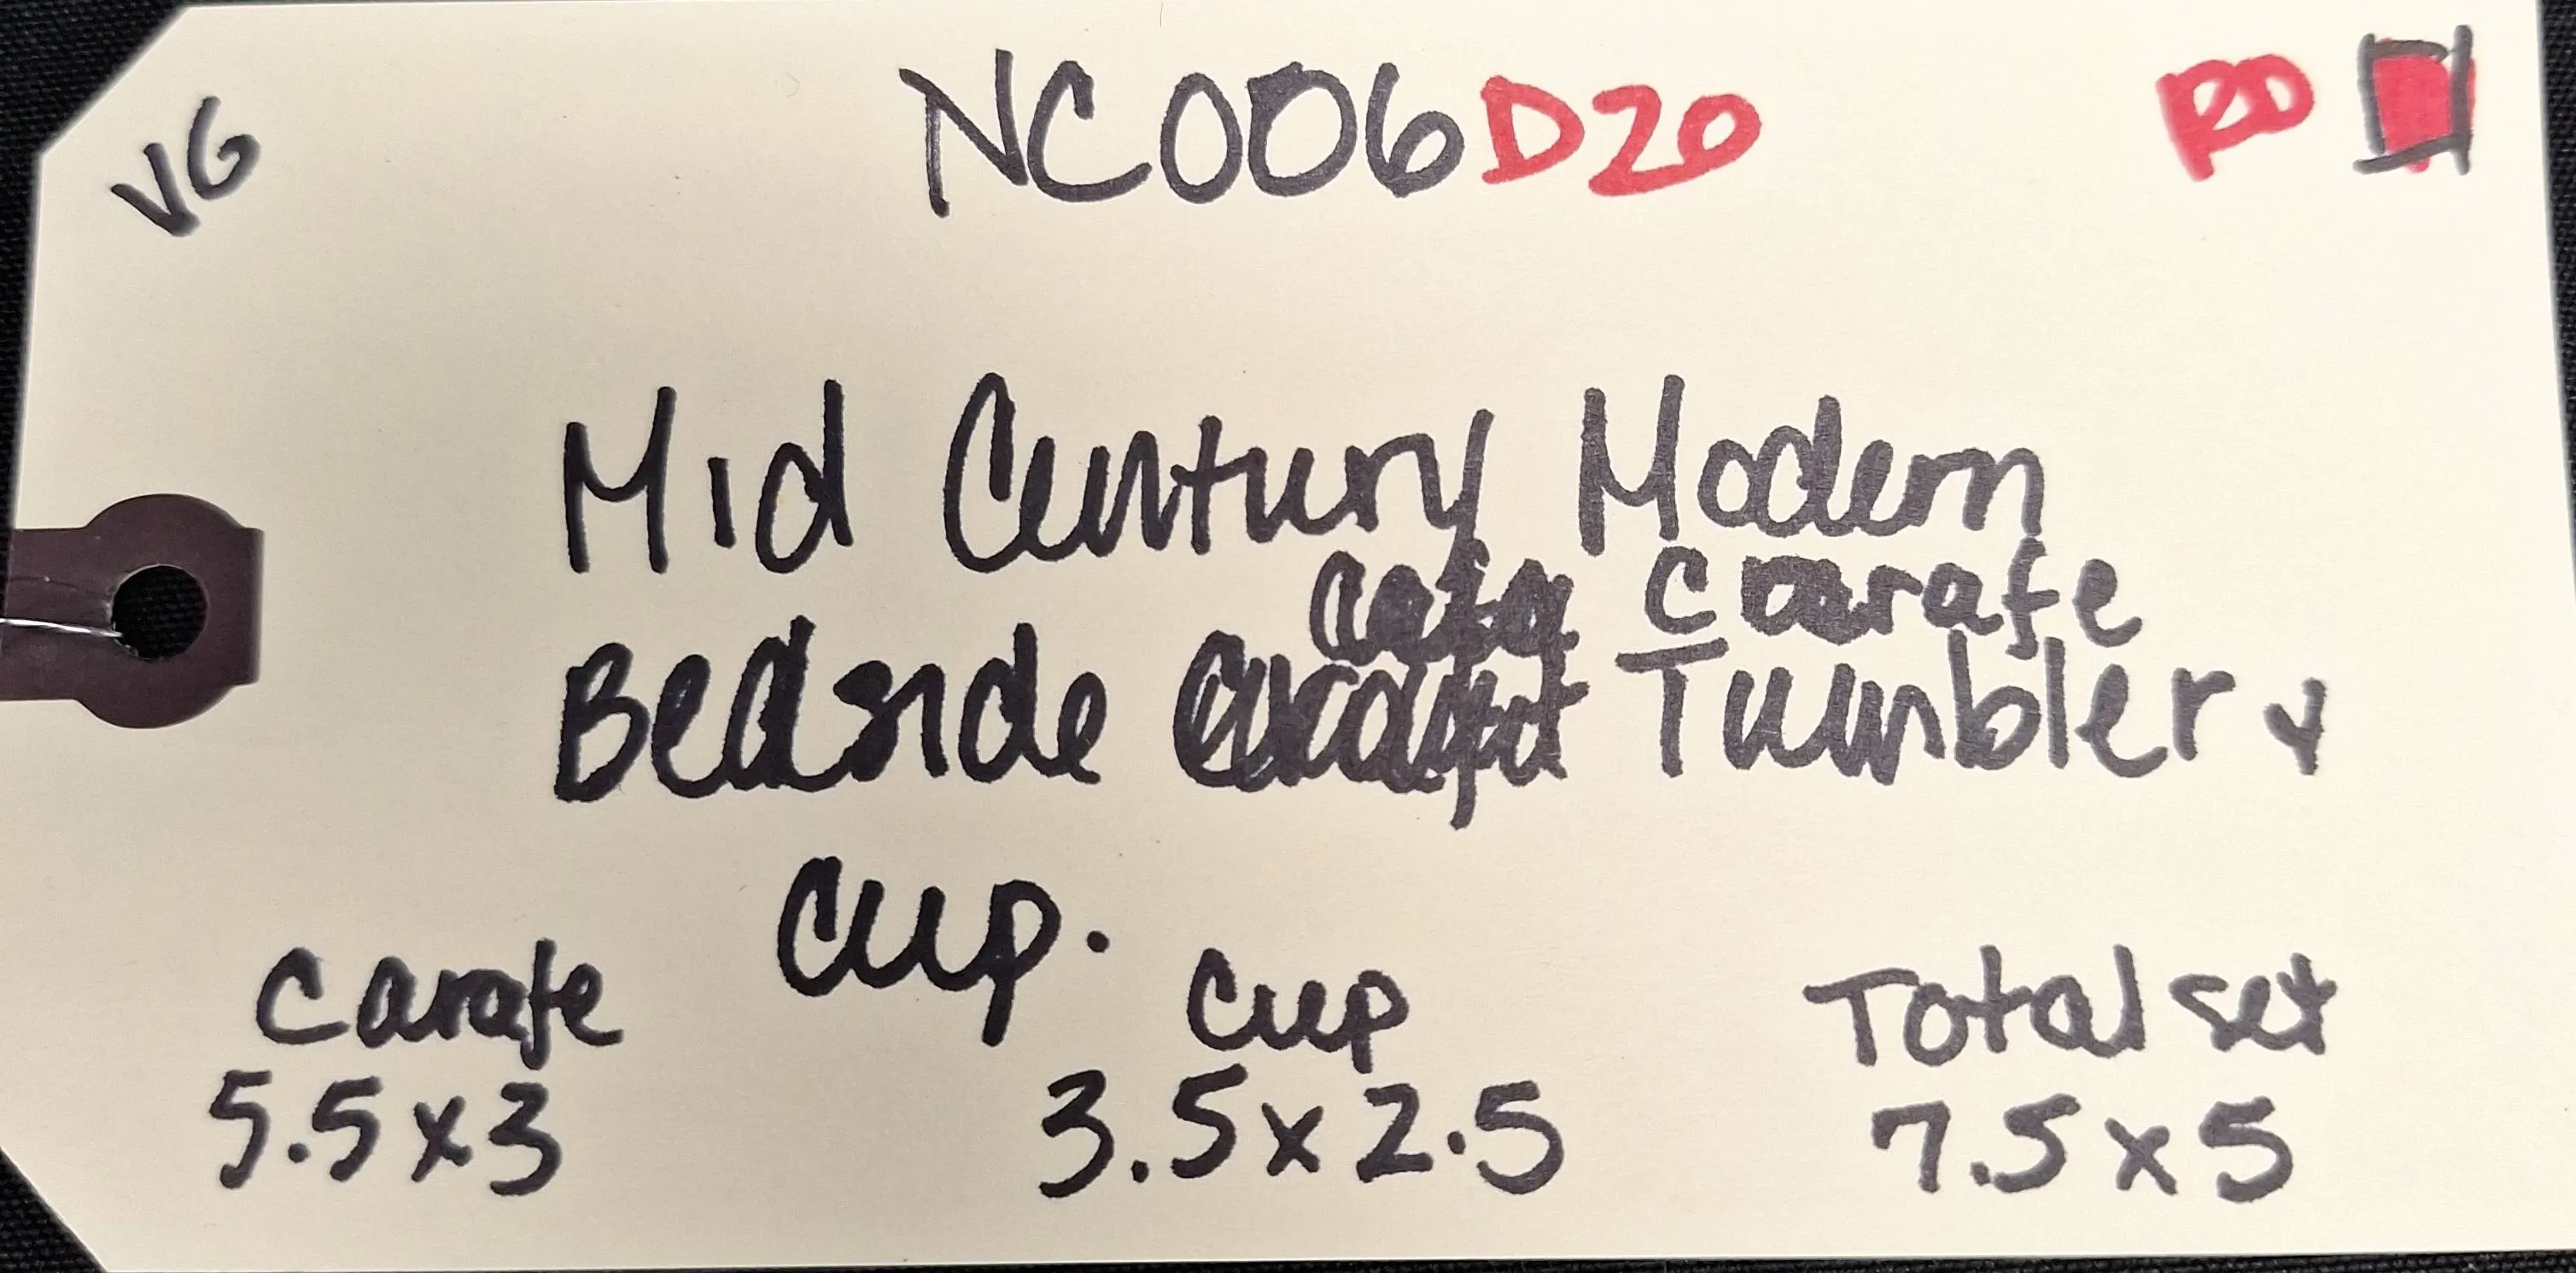 VG
NC006D20
Mid Century Modern
Carafe
Bedside Tumbler &
Cup.
Carafe
5.5x3
Cup
3.5x2.5
Total set
7.5x5